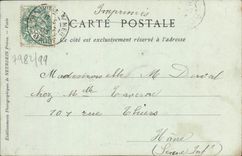 Imprimés
CARTE POSTALE
Ce côté est exclusivement réservé à l'adresse
Mademoiselle M. Duval
Chez Mlle Taverne
107 rue Thiers
Hâvre
(Seine Infre)
Établissements Photographiques de NEURDEIN Frères. — Paris